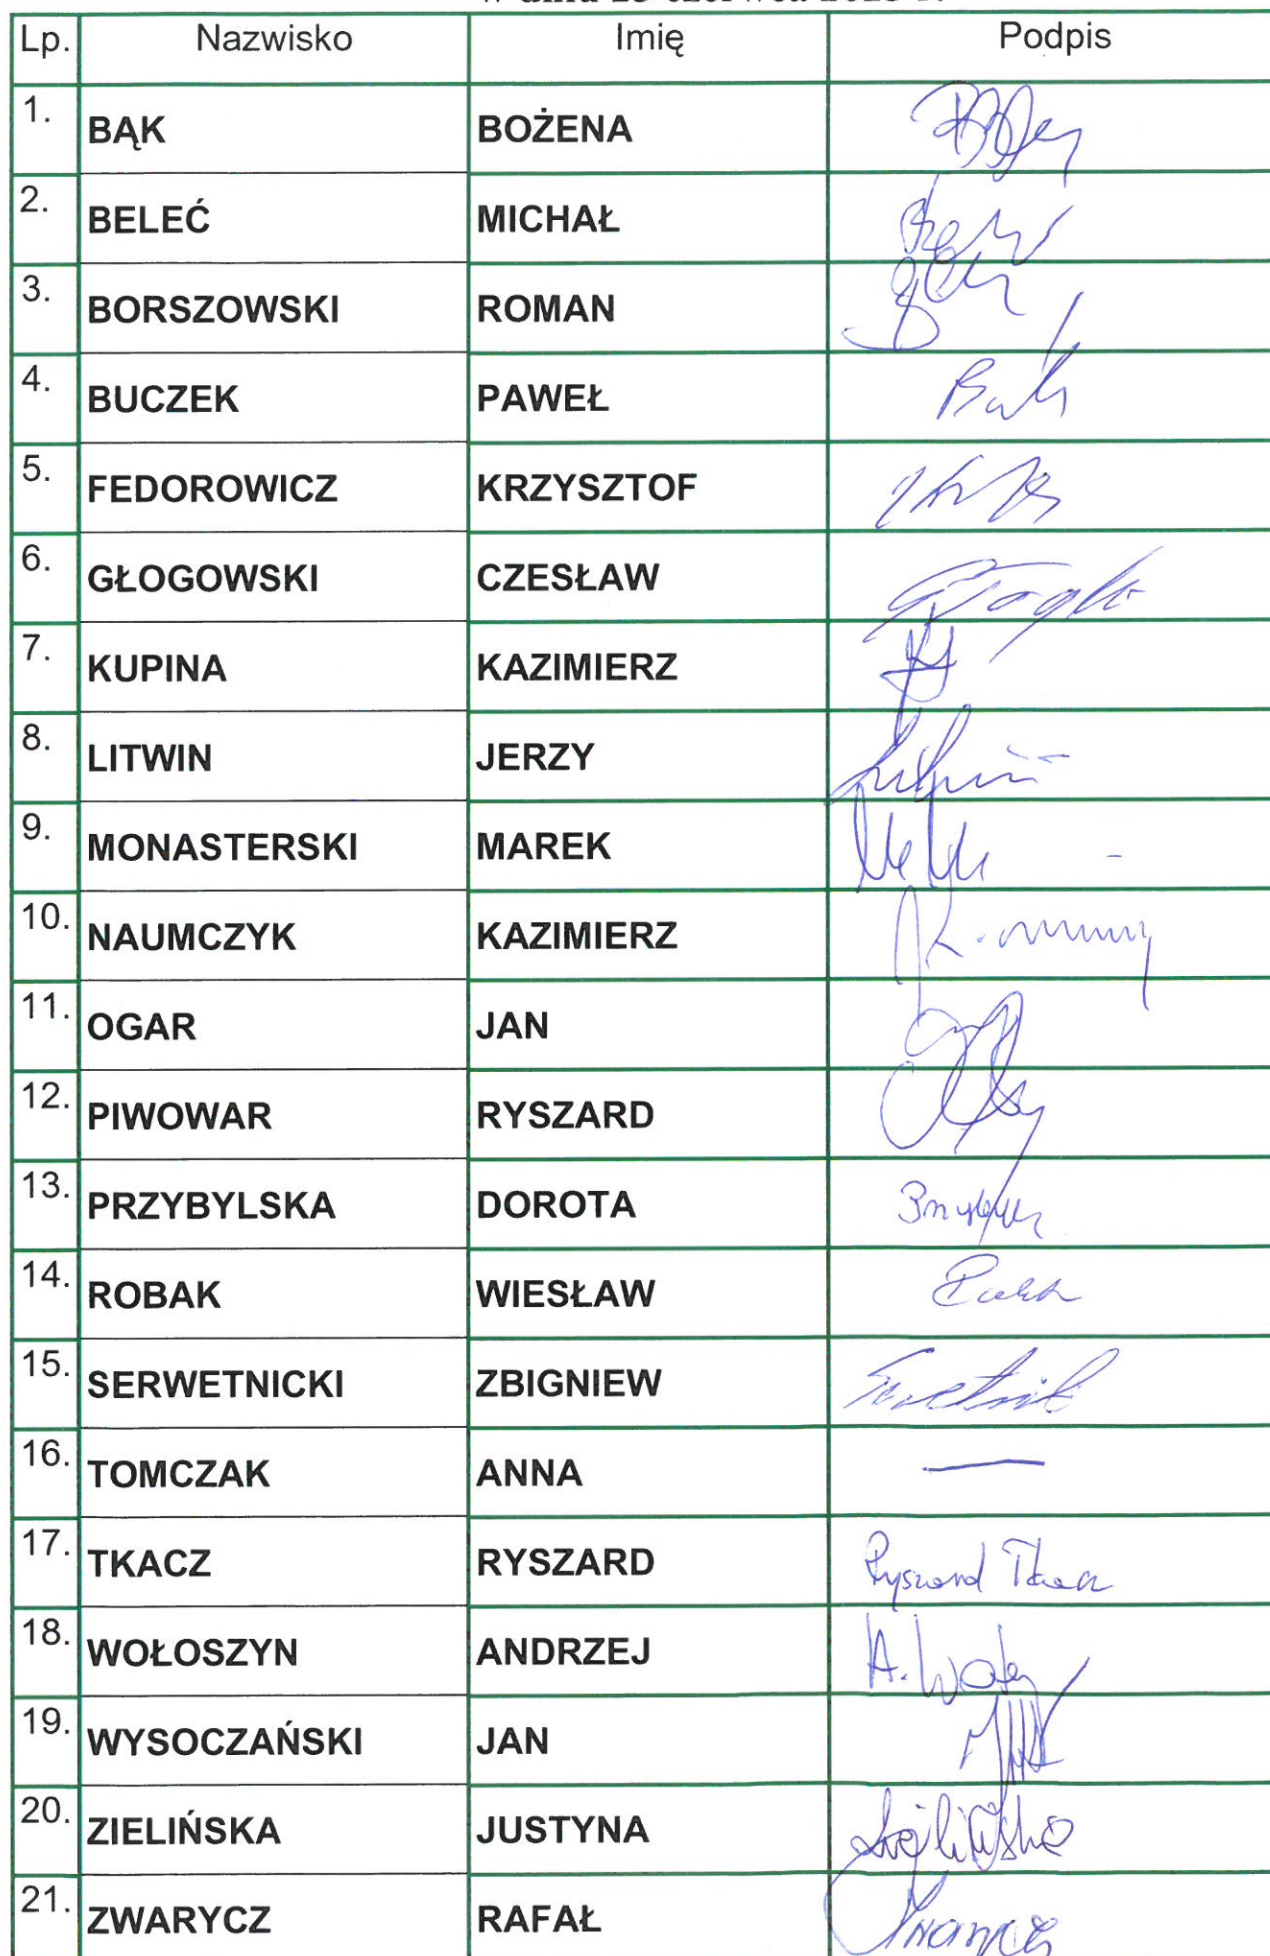 Lp. Nazwisko Imię Podpis
1. BĄK BOŻENA
2. BELEĆ MICHAŁ
3. BORSZOWSKI ROMAN
4. BUCZEK PAWEŁ
5. FEDOROWICZ KRZYSZTOF
6. GŁOGOWSKI CZESŁAW
7. KUPINA KAZIMIERZ
8. LITWIN JERZY
9. MONASTERSKI MAREK
10. NAUMCZYK KAZIMIERZ
11. OGAR JAN
12. PIWOWAR RYSZARD
13. PRZYBYLSKA DOROTA
14. ROBAK WIESŁAW
15. SERWETNICKI ZBIGNIEW
16. TOMCZAK ANNA —
17. TKACZ RYSZARD Ryszard Tkacz
18. WOŁOSZYN ANDRZEJ
19. WYSOCZAŃSKI JAN
20. ZIELIŃSKA JUSTYNA
21. ZWARYCZ RAFAŁ